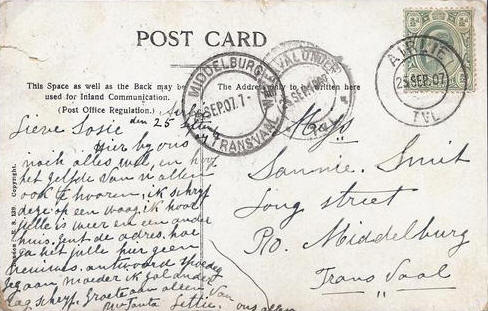 POST CARD
This Space as well as the Back may be
used for Inland Communication.
(Post Office Regulation.)
The Address may be written here
MIDDELBURG
SEP.07.
TRANSVAAL
WATERVALONDER
SEP
AIRLIE
25 SEP.07
TVL
den 25
Lieve Sosie
Hier by ons
noch alles wel, en
het zelfde van u allen
ook te hooren, ik schryf
deze op een
julle is weer en een ander
huis, de adres, hoe
ga het julle hier geen
antwoord spoedig
ik zal ander
dag schryf. Groete aan allen van
Tanta Lettie. ons allen
Miss
Sannie. Smit
Long street
P.o. Middelburg
Trans Vaal
Copyright.